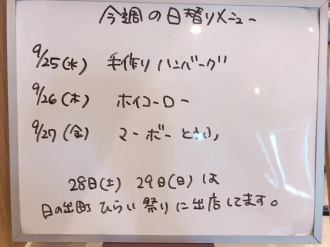 今週の日替りメニュー
9/25(水) 手作りハンバーグ
9/26(木) ホイコーロー
9/27(金) マーボーとうふ
28日(土) 29日(日)は
日の出町ひらい祭りに出店してます。